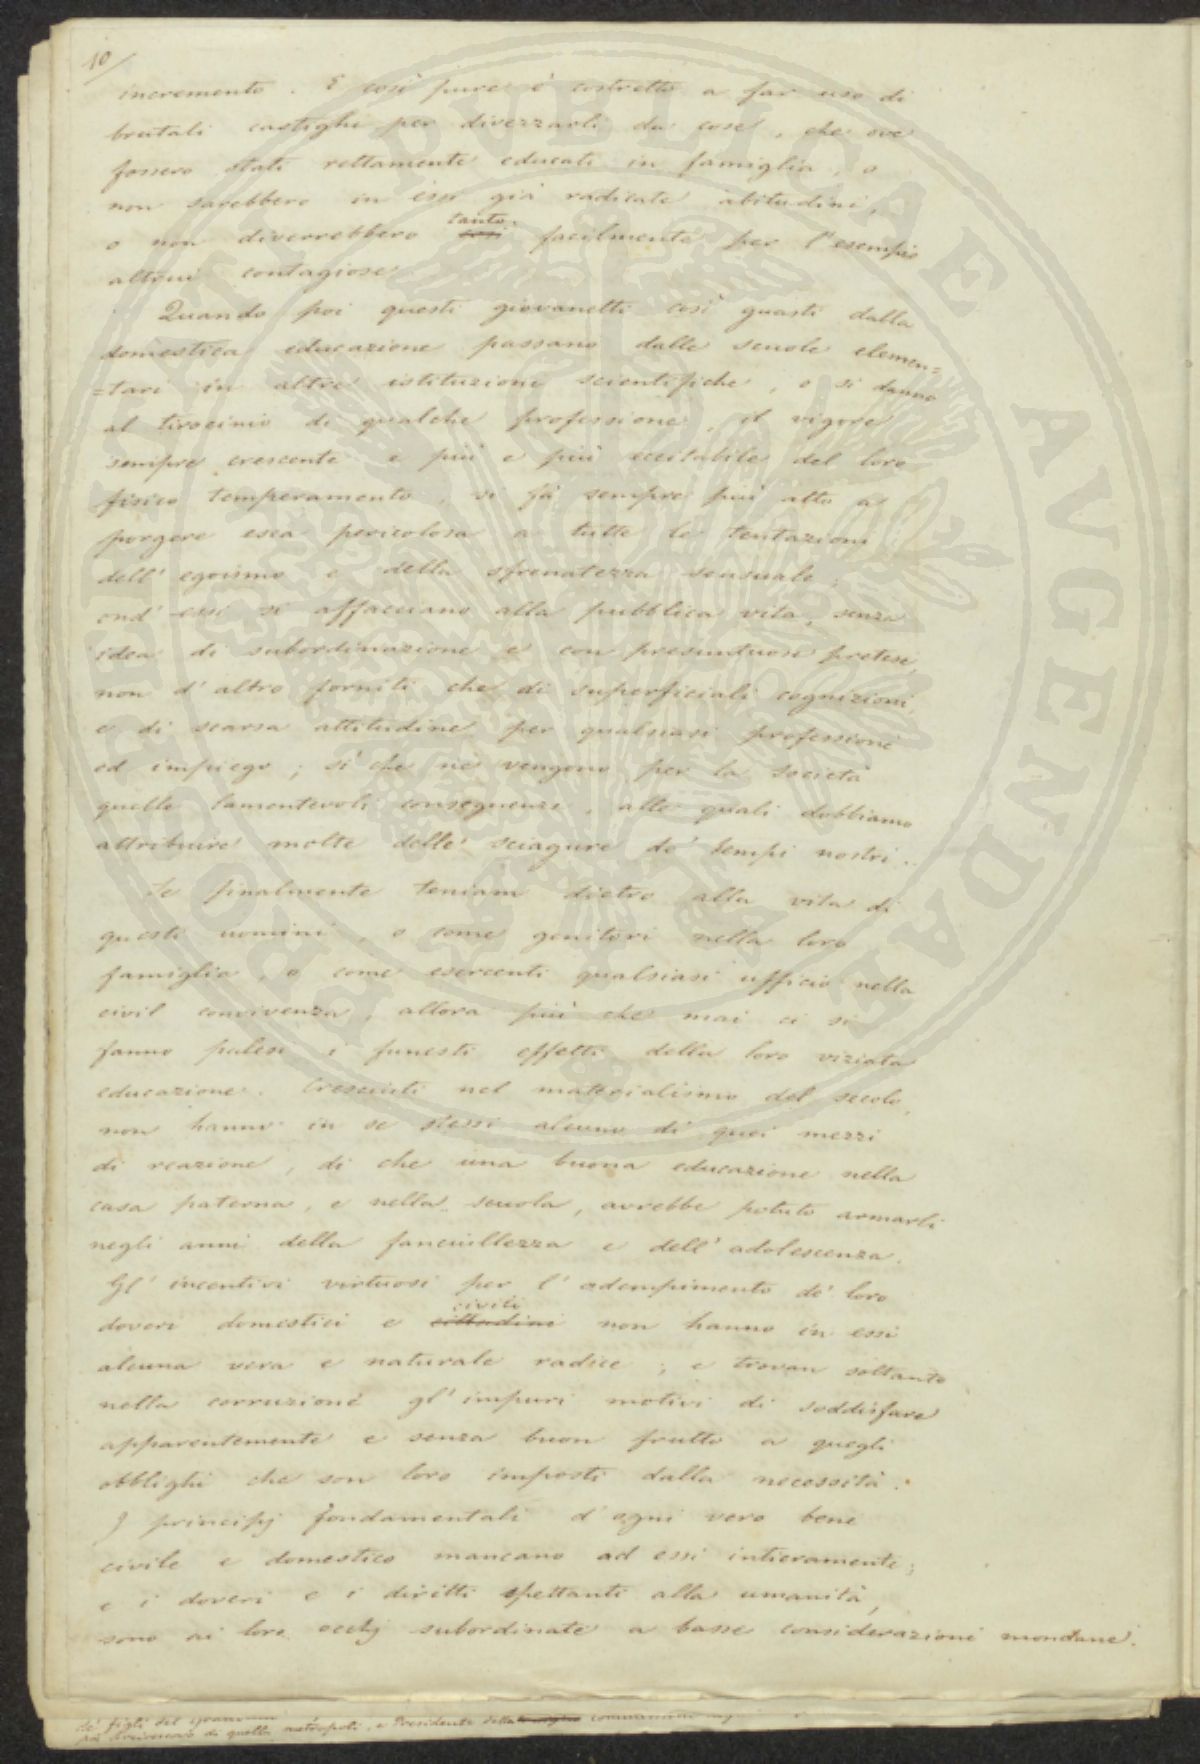 10/
incremento. E così pure è costretto a far uso di
brutali castighi per divezzarli da cose, che ove
fossero stati rettamente educati in famiglia, o
non sarebbero in essi già radicate abitudini,
o non diverrebbero così tanto facilmente per l'esempio
altrui contagiose.
Quando poi questi giovanetti così guasti dalla
domestica educazione passano dalle scuole elemen=
=tari in altre istituzioni scientifiche, o si danno
al tirocinio di qualche professione, il vigore
sempre crescente e più e più eccitabile del loro
fisico temperamento, si fà sempre più atto a
porgere esca pericolosa a tutte le tentazioni
dell'egoismo e della sfrenatezza sensuale;
ond'essi si affacciano alla pubblica vita, senza
idea di subordinazione e con presuntuose pretese,
non d'altro forniti che di superficiali cognizioni,
e di scarsa attitudine per qualsiasi professione
ed impiego; sì che ne vengono per la società
quelle lamentevoli conseguenze, alle quali dobbiamo
attribuire molte delle sciagure de' tempi nostri.
Se finalmente teniam dietro alla vita di
questi uomini, o come genitori nella loro
famiglia, o come esercenti qualsiasi ufficio nella
civil convivenza, allora più che mai ci si
fanno palesi i funesti effetti della loro viziata
educazione. Cresciuti nel materialismo del secolo,
non hanno in se stessi alcuno di quei mezzi
di reazione, di che una buona educazione nella
casa paterna, e nella scuola, avrebbe potuto armarli
negli anni della fanciullezza e dell'adolescenza.
Gl'incentivi virtuosi per l'adempimento de' loro
doveri domestici e cittadini civili non hanno in essi
alcuna vera e naturale radice; e trovan soltanto
nella corruzione gl'impuri motivi di soddisfare
apparentemente e senza buon frutto a quegli
obblighi che son loro imposti dalla necessità.
I principj fondamentali d'ogni vero bene
civile e domestico mancano ad essi intieramente;
e i doveri e i diritti spettanti alla umanità,
sono ai loro occhj subordinate a basse considerazioni mondane.
de' figli del
di quella metropoli, e Presidente della
PUBLICAE AVGENDAE